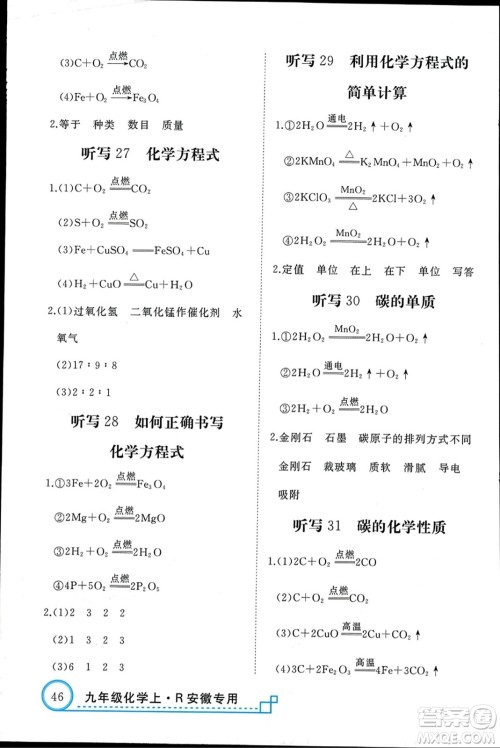 (3)C+O₂ =点燃= CO₂
(4)Fe+O₂ 点燃→ Fe₃O₄
2.等于 种类 数目 质量
听写 27 化学方程式
1.(1)C+O₂ =点燃= CO₂
(2)S+O₂ =点燃= SO₂
(3)Fe+CuSO₄ == FeSO₄+Cu
(4)H₂+CuO =△= H₂O+Cu
2.(1)过氧化氢 二氧化锰作催化剂 水
氧气
(2)17∶9∶8
(3)2∶2∶1
听写 28 如何正确书写
化学方程式
1.①3Fe+2O₂ =点燃= Fe₃O₄
②2Mg+O₂ =点燃= 2MgO
③2H₂+O₂ =点燃= 2H₂O
④4P+5O₂ =点燃= 2P₂O₅
2.(1)1 3 2 3
(2)3 1 2 3
(3)6 1 3 2
46 九年级化学上·R 安徽专用
听写 29 利用化学方程式的
简单计算
1.①2H₂O =通电= 2H₂↑+O₂↑
②2KMnO₄ =△= K₂MnO₄+MnO₂+O₂↑
③2KClO₃ =MnO₂/△= 2KCl+3O₂↑
④2H₂O₂ =MnO₂= 2H₂O+O₂↑
2.定值 单位 在上 在下 单位 写答
听写 30 碳的单质
1.①2H₂O₂ =MnO₂= 2H₂O+O₂↑
②2H₂O =通电= 2H₂↑+O₂↑
2.金刚石 石墨 碳原子的排列方式不同
金刚石 裁玻璃 质软 滑腻 导电
吸附
听写 31 碳的化学性质
1.(1)2C+O₂ =点燃= 2CO
(2)C+O₂ =点燃= CO₂
(3)C+2CuO =高温= 2Cu+CO₂↑
(4)3C+2Fe₂O₃ =高温= 4Fe+3CO₂↑
作业帮